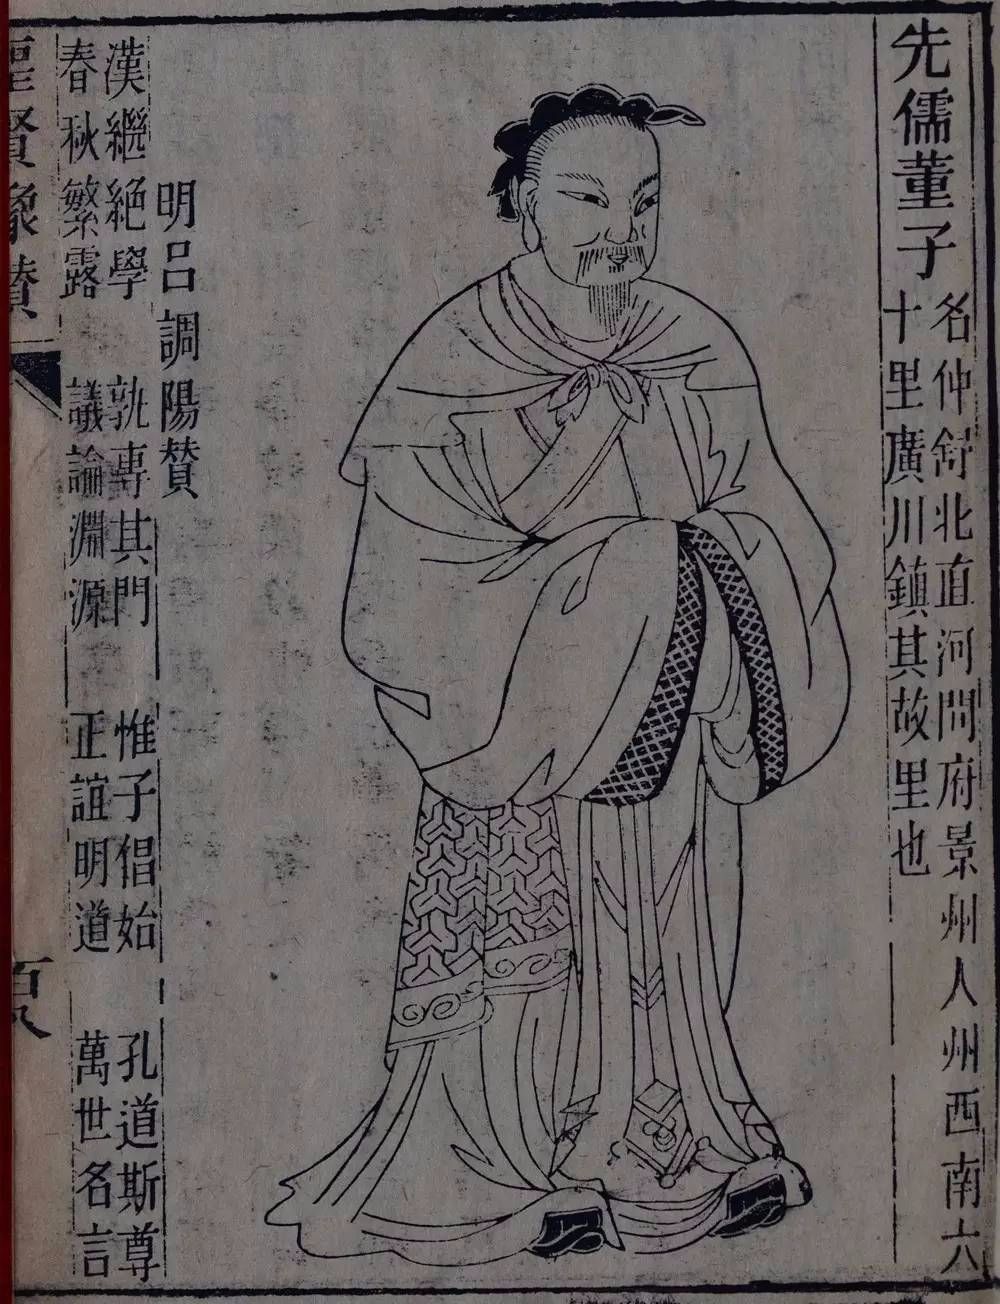 先儒董子
名仲舒北直河間府景州人州西南六
十里廣川鎮其故里也
明呂調陽賛
漢繼絕學 孰專其門 惟子倡始 孔道斯尊
春秋繁露 議論淵源 正誼明道 萬世名言
聖賢像賛